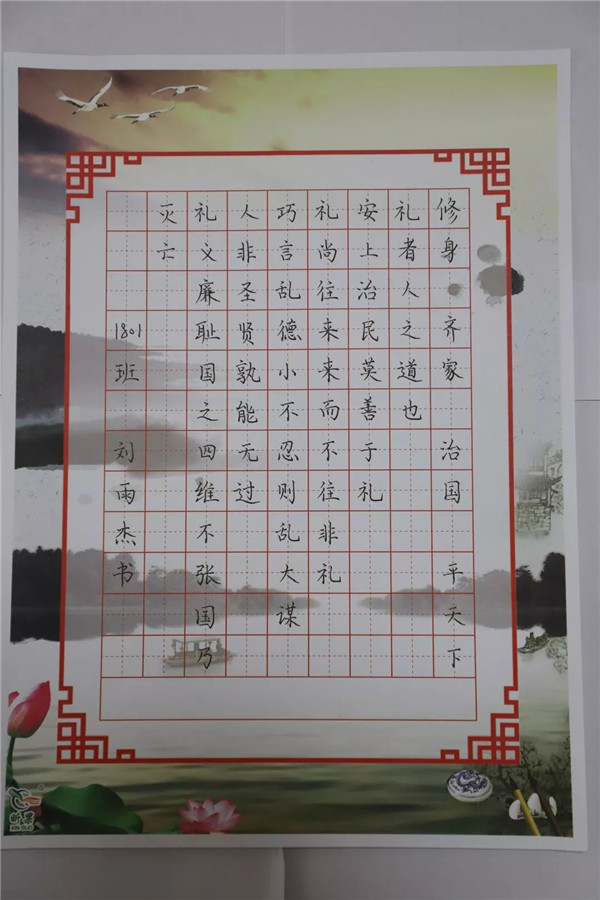 修身 齐家 治国 平天下
礼者人之道也
安上治民莫善于礼
礼尚往来来而不往非礼
巧言乱德小不忍则乱大谋
人非圣贤孰能无过
礼义廉耻国之四维不张国乃
灭亡
1801班 刘雨杰书